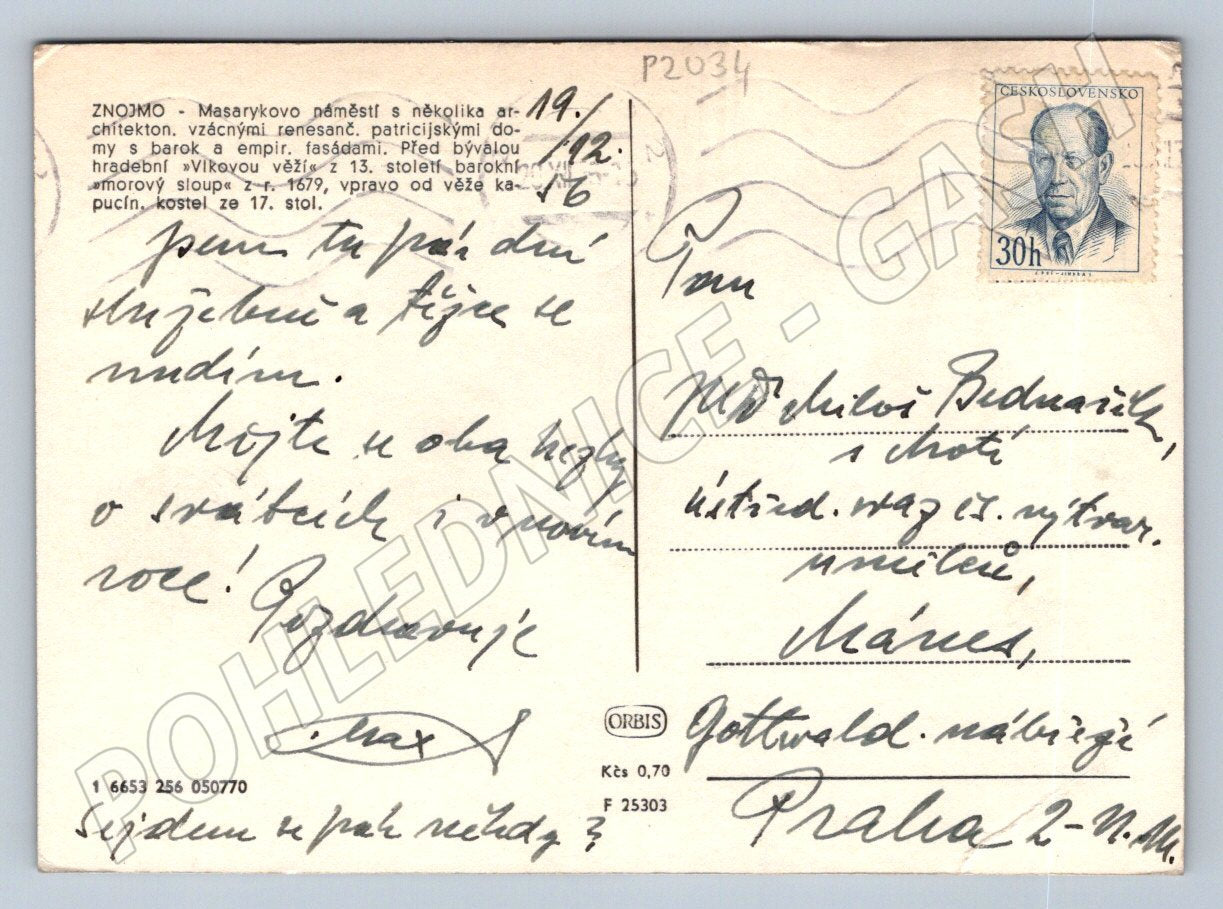 P2034
ZNOJMO - Masarykovo náměstí s několika ar-
chitekton. vzácnými renesanč. patricijskými do-
my s barok a empir. fasádami. Před bývalou
hradební »Vlkovou věží« z 13. století barokní
»morový sloup« z r. 1679, vpravo od věže ka-
pucín. kostel ze 17. stol.
19./
/12.
56
jsem tu pár dní
služebně a těžce se
nudím.
Mějte se oba hezky
o svátcích i v novém
roce!
Pozdravuje
Max
1 6653 256 050770
Sejdem se pak někdy?
ORBIS
Kčs 0,70
F 25303
ČESKOSLOVENSKO
30h
Pan
Miloš Bednařík,
ústřed. svaz čs. výtvar.
umělců,
Mánes,
Gottwald. nábřeží
Praha 2-N.M.
POHLEDNICE - GASCH